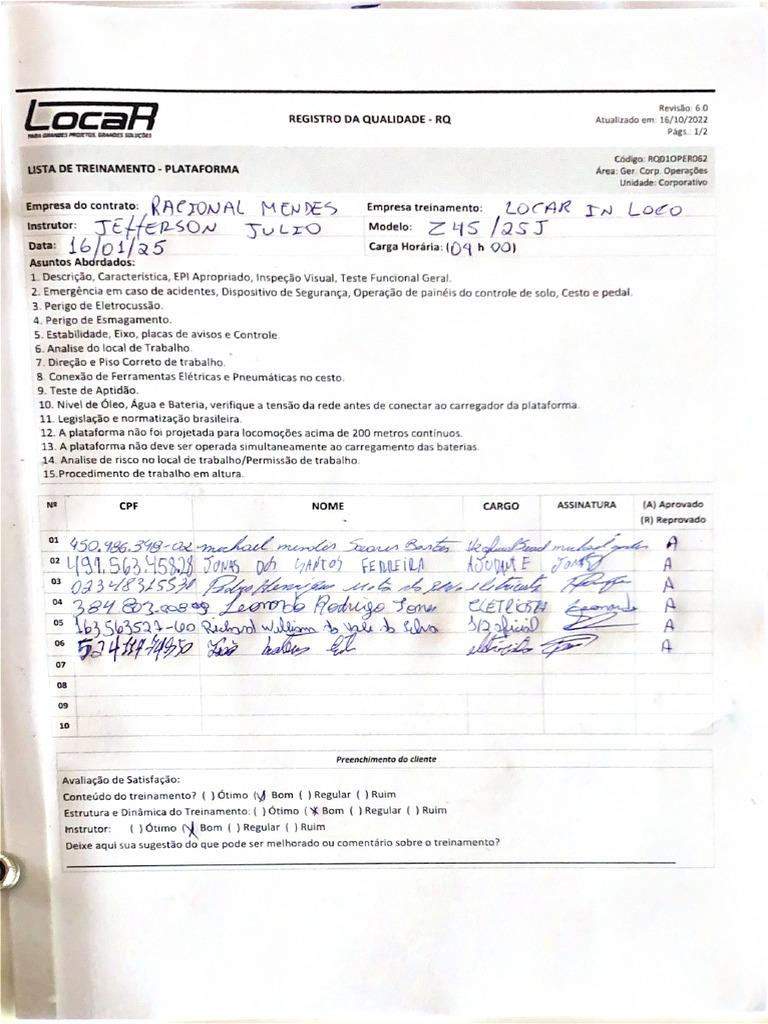 LocaR
PARA GRANDES PROJETOS, GRANDES SOLUÇÕES
REGISTRO DA QUALIDADE - RQ
Revisão: 6.0
Atualizado em: 16/10/2022
Págs.: 1/2
LISTA DE TREINAMENTO - PLATAFORMA
Código: RQ01OPER062
Área: Ger. Corp. Operações
Unidade: Corporativo
Empresa do contrato: RACIONAL MENDES
Empresa treinamento: LOCAR IN LOCO
Instrutor: JEFFERSON JULIO
Modelo: Z45/25J
Data: 16/01/25
Carga Horária: (04 h 00)
Asuntos Abordados:
1. Descrição, Característica, EPI Apropriado, Inspeção Visual, Teste Funcional Geral.
2. Emergência em caso de acidentes, Dispositivo de Segurança, Operação de painéis do controle de solo, Cesto e pedal.
3. Perigo de Eletrocussão.
4. Perigo de Esmagamento.
5. Estabilidade, Eixo, placas de avisos e Controle.
6. Analise do local de Trabalho.
7. Direção e Piso Correto de trabalho.
8. Conexão de Ferramentas Elétricas e Pneumáticas no cesto.
9. Teste de Aptidão.
10. Nível de Óleo, Água e Bateria, verifique a tensão da rede antes de conectar ao carregador da plataforma.
11. Legislação e normatização brasileira.
12. A plataforma não foi projetada para locomoções acima de 200 metros contínuos.
13. A plataforma não deve ser operada simultaneamente ao carregamento das baterias.
14. Analise de risco no local de trabalho/Permissão de trabalho.
15.Procedimento de trabalho em altura.
Nº CPF NOME CARGO ASSINATURA (A) Aprovado
(R) Reprovado
01 michael mendes Soares A
02 491.563.458.28 JONAS DOS SANTOS FERREIRA AJUDANTE JONAS A
03 Pedro Henrique eletricista A
04 Leonardo Rodrigo Leonardo A
05 163563527-60 Richard William do Vale da Silva 1/2 oficial A
06 A
07
08
09
10
Preenchimento do cliente
Avaliação de Satisfação:
Conteúdo do treinamento? ( ) Ótimo (✓) Bom ( ) Regular ( ) Ruim
Estrutura e Dinâmica do Treinamento: ( ) Ótimo (X) Bom ( ) Regular ( ) Ruim
Instrutor: ( ) Ótimo (X) Bom ( ) Regular ( ) Ruim
Deixe aqui sua sugestão do que pode ser melhorado ou comentário sobre o treinamento?